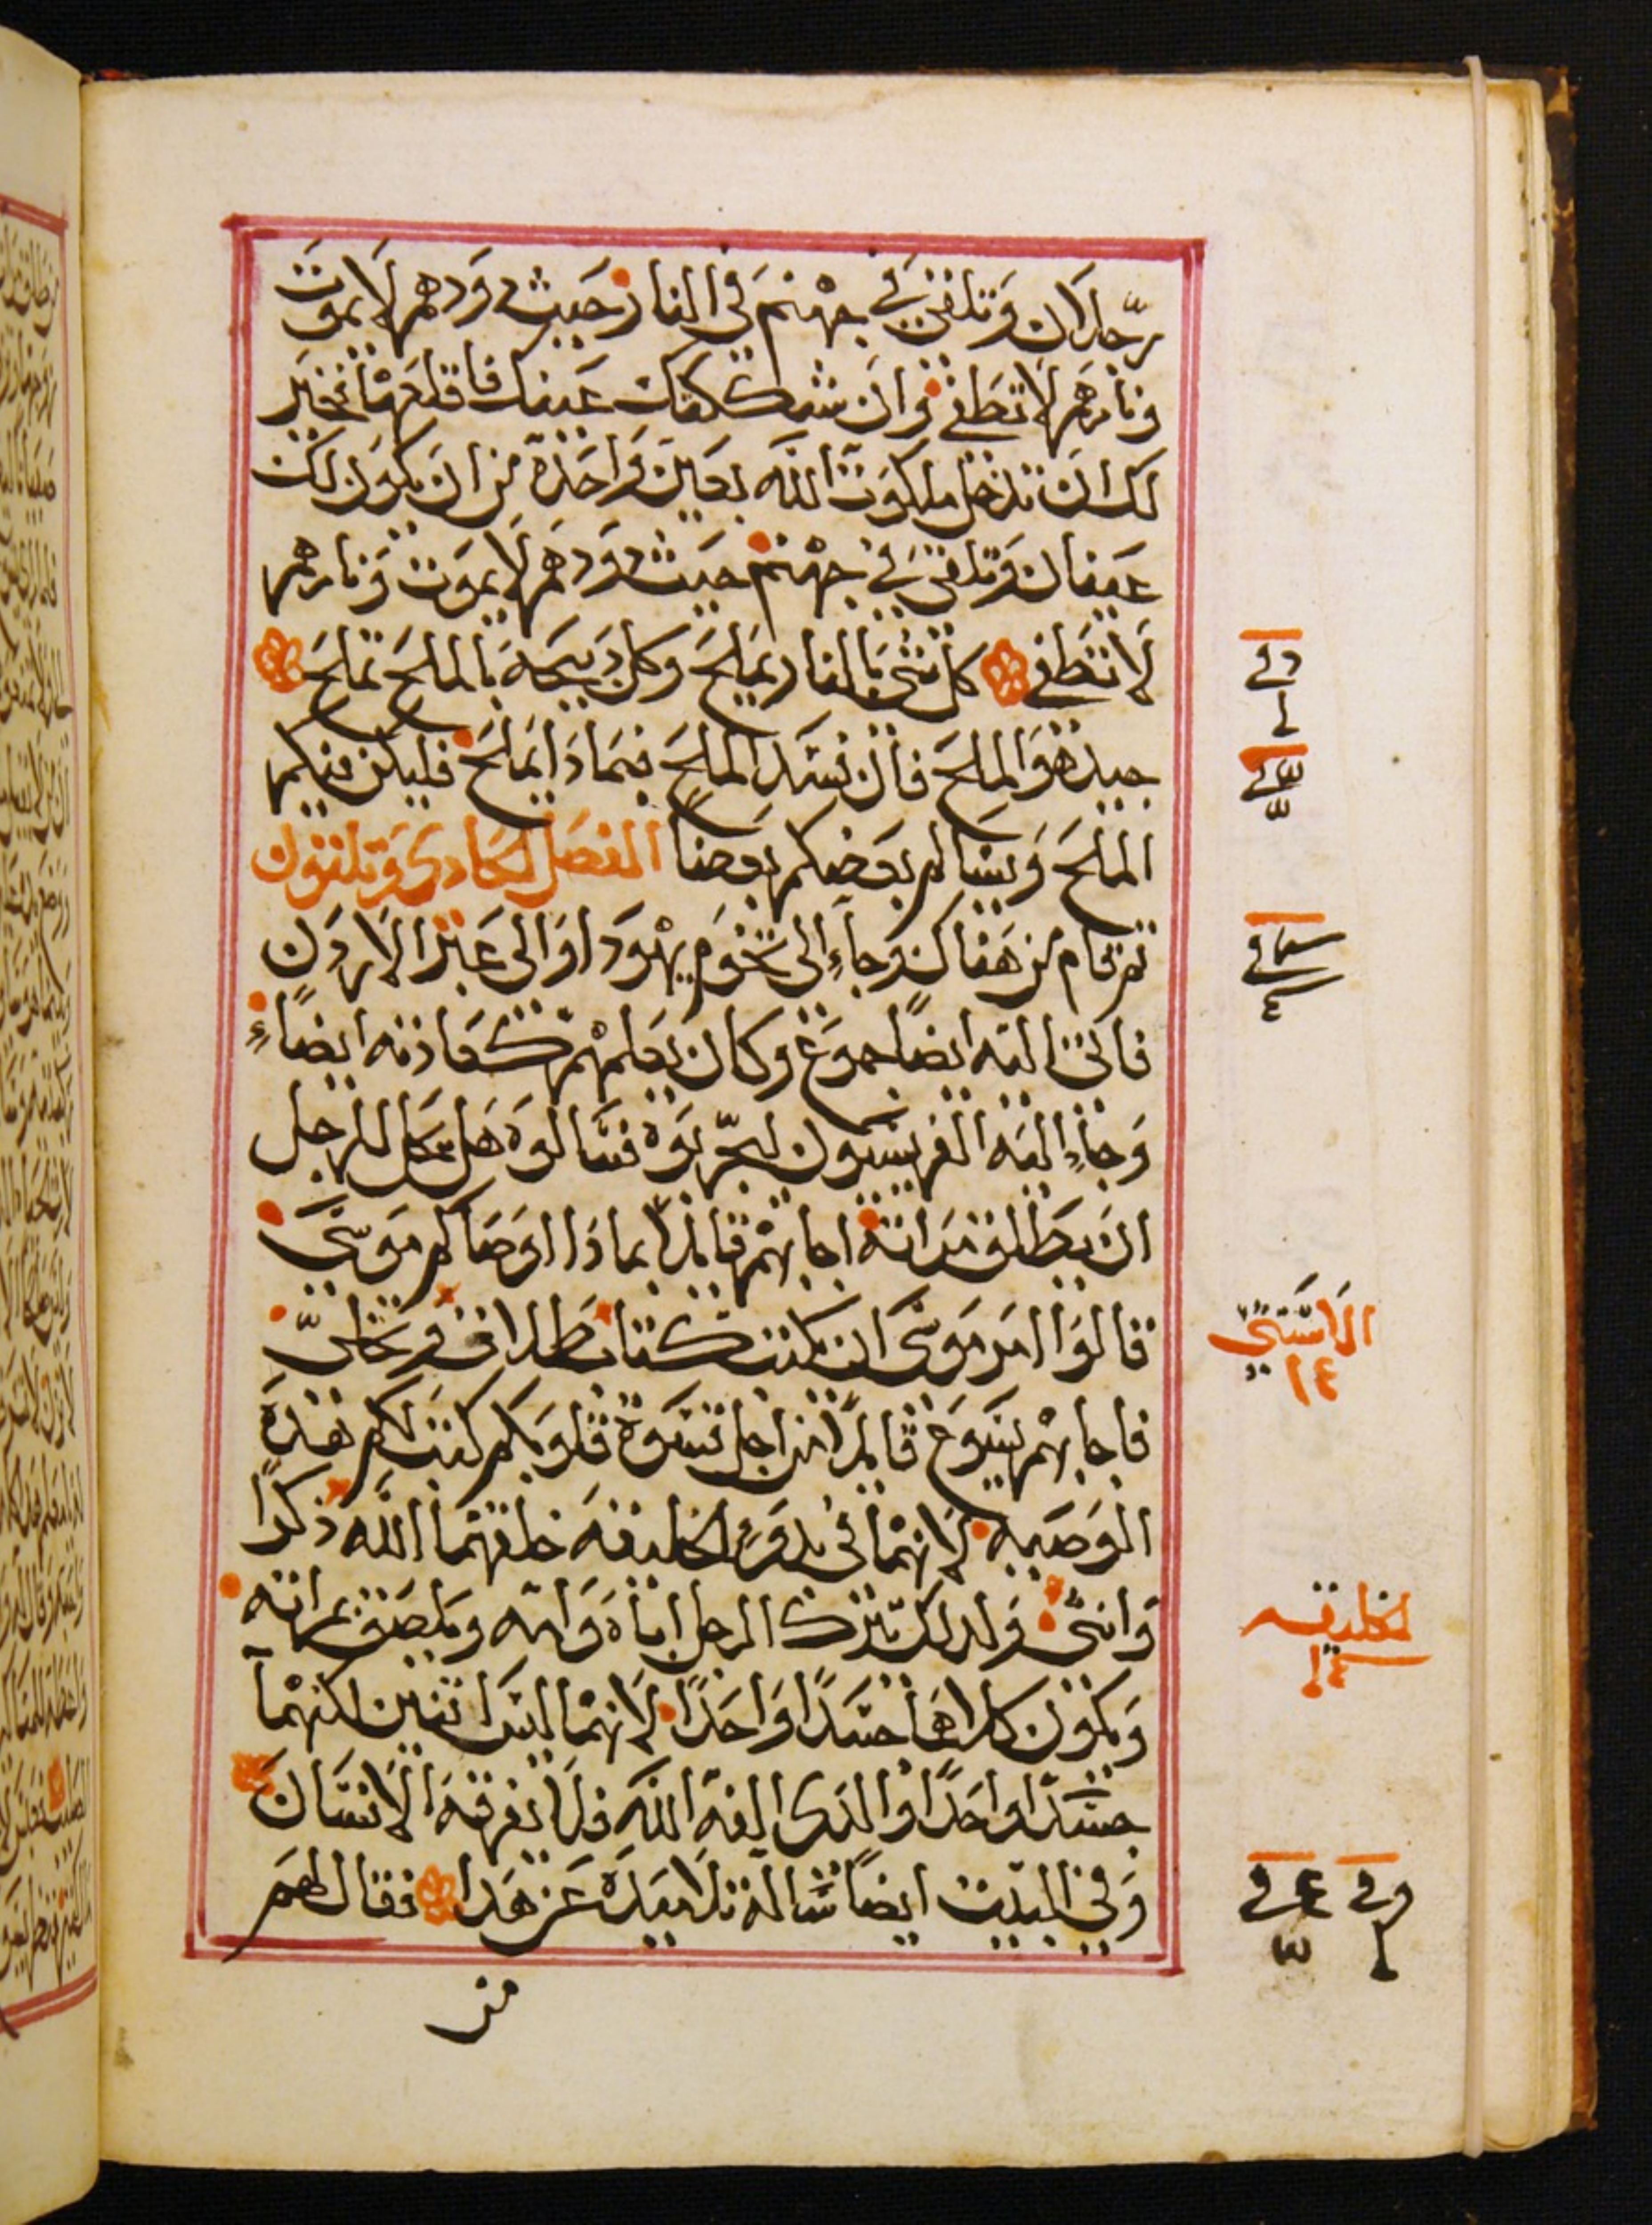 رّجلان وَتلقىَ فيَ جهنم في النار حَيث دودهم لا يموت
ونارهم لا تطفى وان شككتك عَينك فاقلعهَا فخير
لك ان تدخل ملكوت الله بعَين وَاحدة من ان يكون لك
عَينان وَتلقىَ في جهنم حيث دودهم لا يموت وَنارهم
لا تنطفى كل شى بالنار يملح وكل ذبيحة بالملح تملح
جيد هوَ الملح فان فسَد الملح فبماذا يملح فليكن فيكم
الملح وَيسَالم بعضكم بعضا الفصل الحادى وَتلتون
ثم قام من هناك وجاء الى تخوم يهودا والى عَبر الاردن
فاتى اليه ايضاً جموع وكان يعلمهم كعادته ايضاء
وَجاء اليه الفريسيون ليجرّبوه فسَالوه هَل يحل للرجل
ان يطلق مراته اجابهم قايلا بماذا اوصاكم موسَى
قالوا امر موسَى ان يكتب كتاب طلاق ويخلىّ
فاجابهم يسَوع قايلاً من اجل قسَوة قلوبكم كتب لكم هذه
الوصيه لانهما في بدو الخليقه خلقهما الله ذكرا
وَانثى ولذلك يترك الرجل اباه وَامه ويلصق بمراته
وَيكون كلاهما جسَدًا وَاحدًا لانهما ليسَ اثنين لكنهما
جسَدًا وَاحدًا والذى الفه الله فلا يفرقه الانسَان
وَفي البيت ايضاً سَالة تلاميذه عَن هَدا فقال لهم
من
الاستثنى
٢٤
الخليقه